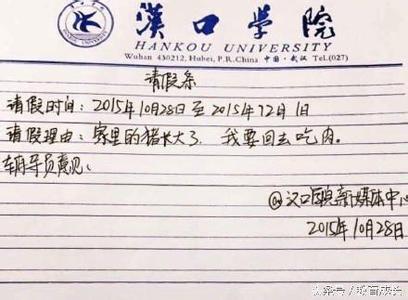 漢口學院
HANKOU UNIVERSITY
Wuhan 430212, Hubei, P.R.China 中国·武汉 Tel:(027)
请假条
请假时间：2015年10月28日至2015年12月1日
请假理由：家里的猪长大了，我要回去吃肉。
辅导员意见：
@汉口学院新媒体中心
2015年10月28日
头条号